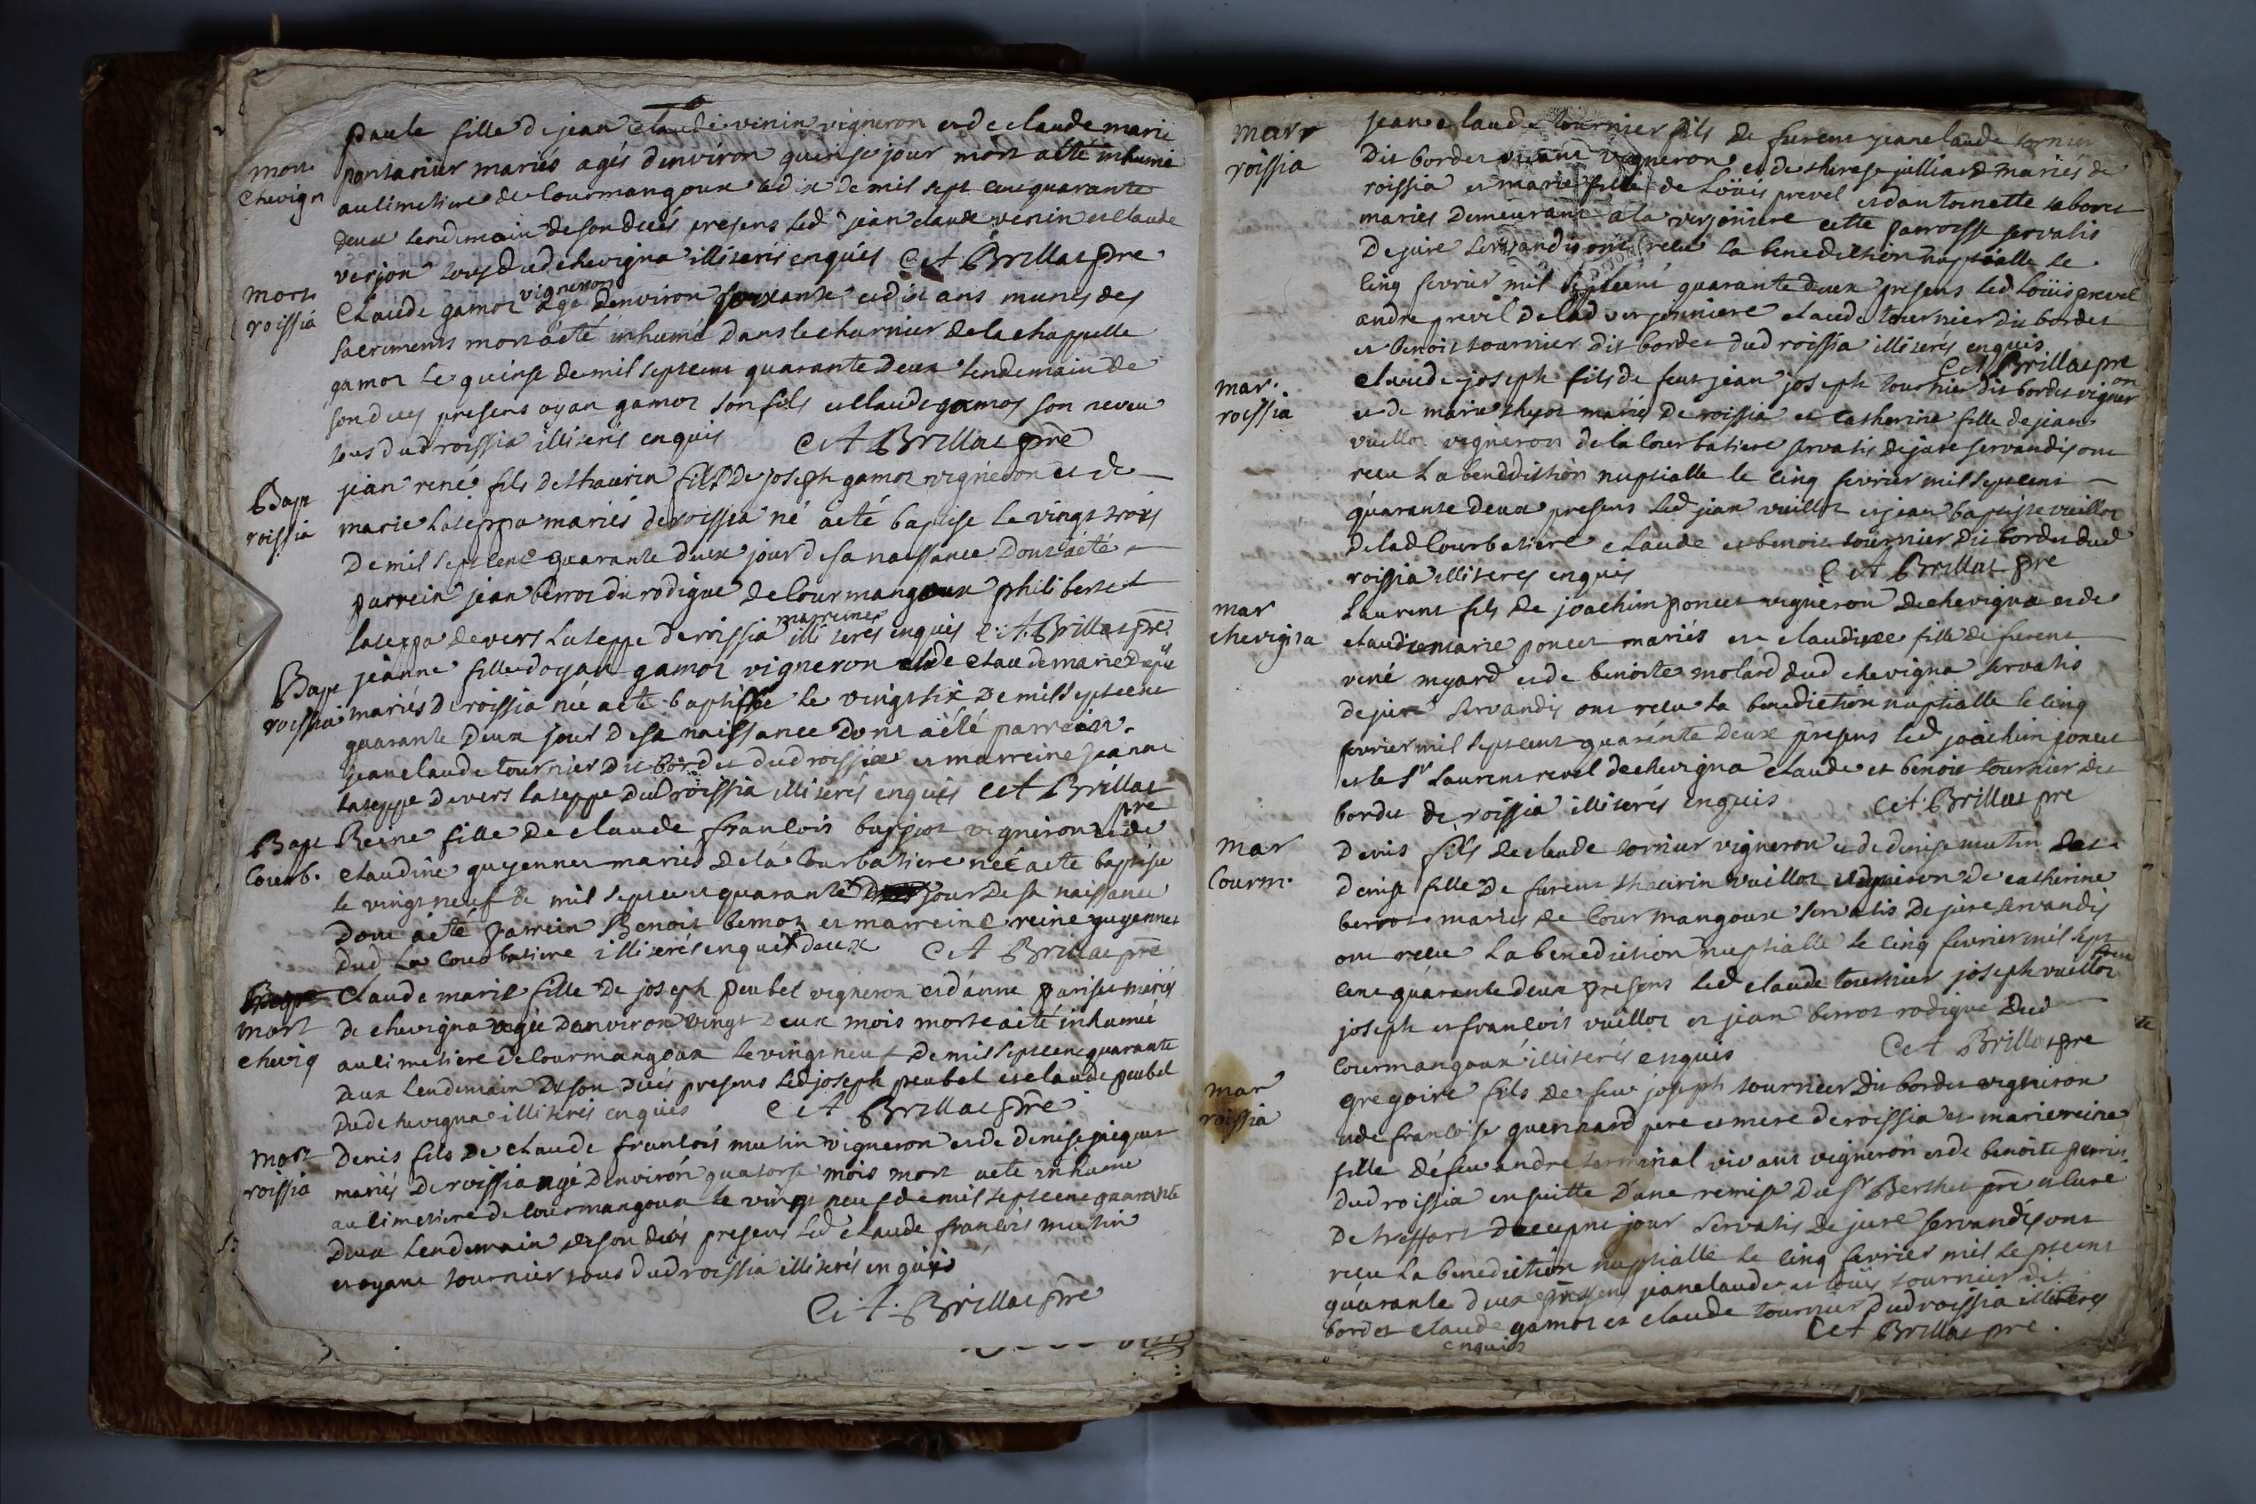 mort
Chevign
paule fille de jean claude venin vigneron et de claude marie
pantanier mariés agés denviron quinse jour mort a été inhumé
au cimetiere de Courmangoux le dix de mil sept cent quarante
deux lendemain de son decés presens led jean claude venin et claude
verjon tous dud chevigna illiterés enquis C A Brillat pre
mort
roissia
Claude gamot vigneron agé denviron soixante et dix ans munis des
sacrements mort a été inhumé dans le charnier de la chappelle
gamot le quinse de mil sept cent quarante deux lendemain de
son decés presens oyan gamot son fils et claude gamot son neveu
tous dud roissia illiterés enquis C A Brillat pre
Bapt
roissia
jean rené fils de thaurin fils de joseph gamot vigneron et de
marie lateppa mariés de roissia né a été baptisé le vingt trois
de mil sept cent quarante deux jour de sa naissance dont a été
parrein jean berrot du rodigue de Courmangoux philiberte
lateppa devers lateppe de roissia marreine illiterés enquis C. A. Brillat pre
Bapt
roissia
jeanne fille doyan gamot vigneron et de claude marie
mariés de roissia née a eté baptisée le vingt six de mil sept cent
quarante deux jour de sa naissance dont a été parrein
jean claude tournier dit bordet dud roissia et marreine jeanne
lateppe devers lateppe dud roissia illiterés enquis C A Brillat
pre
Bapt
Courb.
Reine fille de claude francois burjot vigneron et de
claudine guyennet mariés de la Courbatiere née a eté baptisée
le vingt neuf de mil sept cent quarante jour de sa naissance
dont a été parrein Benoit bernoz et marreine reine guyennet
dud la Courbatiere illiterés enquis deux C A Brillat pre
mort
chevig
Claude marie fille de joseph peubel vigneron et danne pariset mariés
de chevigna agée denviron vingt deux mois morte a été inhumée
au cimetiere de Courmangoux le vingt neuf de mil sept cent quarante
deux lendemain de son decés presens led joseph peubel et claude peubel
dud chevigna illiterés enquis C A Brillat pre
mort
roissia
Denis fils de claude francois mutin vigneron et de denise jacquet
mariés de roissia agé denviron quatorse mois mort a eté inhumé
au cimetiere de Courmangoux le vingt neuf de mil sept cent quarante
deux lendemain de son decés presens led claude francois mutin
et oyant tournier tous dud roissia illiterés enquis
C. A. Brillat pre
marr
roissia
jean claude tournier fils de furent jean claude tornier
dit bordet vivant vigneron et de therese julliard mariés de
roissia et marie fille de Loüis prevel et dantoinette
mariés demeurant a la verjoniere cette parroisse servatis
de jure servandis ont recu la benediction nuptialle le
cinq fevrier mil sept cent quarante deux presens led Loüis prevel
andre prevel de lad verjonniere claude tournier dit bordet
et benoit tournier dit bordet dud roissia illiterés enquis
C A Brillat pre
mar.
roissia
claude joseph fils de feu jean joseph tournier dit bordet vigneron
et de marie mariés de roissia et catherine fille de jean
vuillot vigneron de la Courbatiere servatis de jure servandis ont
recu la benediction nuptialle le cinq fevrier mil sept cent
quarante deux presens led jean vuillot et jean baptiste vuillot
de lad Courbatiere claude et benoit tournier dit bordet dud
roissia illiterés enquis C A Brillat pre
mar
chevigna
Laurent fils de joachim poncet vigneron de chevigna et de
claudemarie poncet mariés et claudine fille de furent
rené myard et de benoite molard dud chevigna servatis
de jure servandis ont recu la benediction nuptialle le cinq
fevrier mil sept cent quarante deux presens led joachim poncet
et le Sr Laurent revel de chevigna claude et benoit tournier dit
bordet de roissia illiterés enquis C A Brillat pre
mar
Courm.
Denis fils de claude tornier vigneron et de denise mutin
denise fille de furent thaurin vuillot vigneron de catherine
berrot mariés de Courmangoux servatis de jure servandis
ont recu la benediction nuptialle le cinq fevrier mil sept
cent quarante deux presens led claude tournier joseph vuillot
joseph et francois vuillot et jean berrot rodigue dud
Courmangoux illiterés enquis C A Brillat pre
mar
roissia
gregoire fils de feu joseph tournier dit bordet vigneron
et de francoise guennard pere et mere de roissia et marie reine
fille de feu andre terminal vivant vigneron et de benoite perrin
dud roissia en suitte dune remise du Sr Berthet pre et curé
de treffort servatis de jure servandis ont
recu la benediction nuptialle le cinq fevrier mil sept cent
quarante deux presens jean claude et loüis tournier dit
bordet claude gamot et claude tournier dud roissia illiterés
enquis C A Brillat pre.